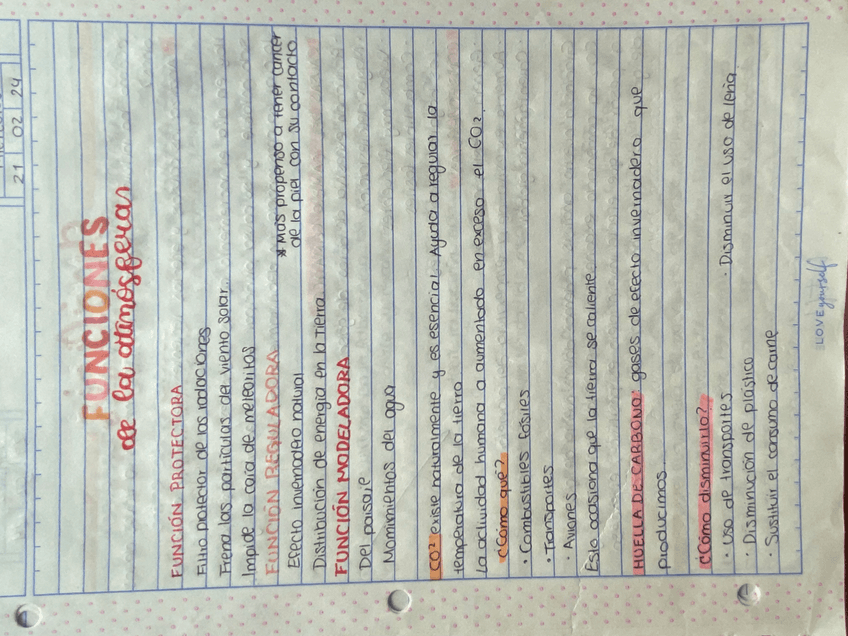 21 02 24
FUNCIONES
de la atmósfera
FUNCIÓN PROTECTORA
Filtro protector de las radiaciones
Frena las partículas del viento solar
Impide la caída de meteoritos
FUNCIÓN REGULADORA
*Más propenso a tener cáncer
de la piel con su contacto
Efecto invernadero natural
Distribución de energía en la Tierra
FUNCIÓN MODELADORA
Del paisaje
Momimientos del agua
CO² existe naturalmente y es esencial. Ayuda a regular la
temperatura de la tierra
La actividad humana a aumentado en exceso el CO2.
¿Cómo qué?
· Combustibles fósiles
· Transportes
· Aviones
Esto ocasiona que la tierra se caliente
HUELLA DE CARBONO: gases de efecto invernadero que
producimos
¿Cómo disminuirlo?
· Uso de transportes
· Disminuir el uso de leña
· Disminución de plástico
· Sustituir el consumo de carne
LOVE yourself